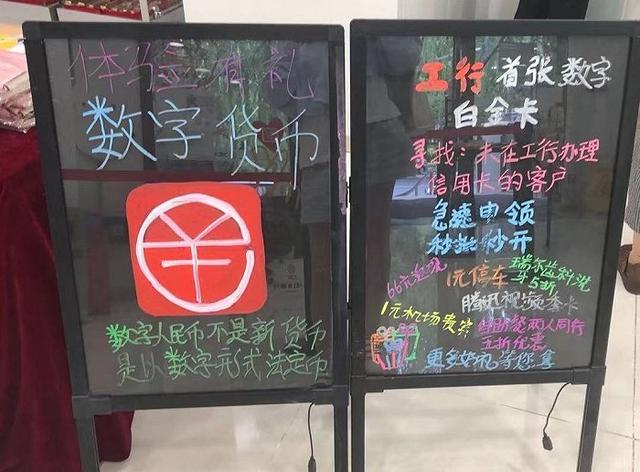 体验金有礼
数字货币
数字人民币不是新货币
是以数字形式法定币
工行 首张数字
白金卡
寻找：未在工行办理
信用卡的客户
急速申领
秒批秒开
66元返现
1元停车
瑞尔齿科洗
牙5折
腾讯视频季卡
1元机场贵宾
自助餐两人同行
五折优惠
更多好礼等您拿